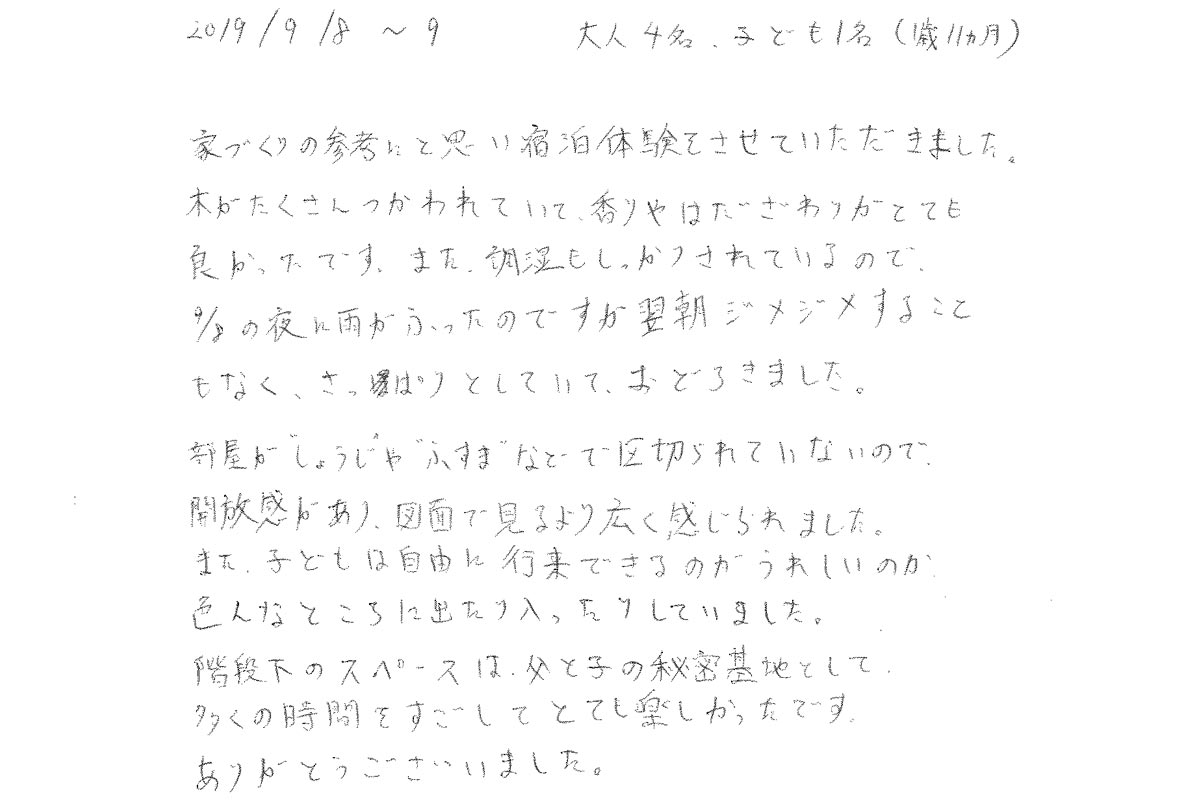 2019/9/8 ～ 9 大人4名、子ども1名(1歳11ヵ月)
家づくりの参考にと思い宿泊体験をさせていただきました。
木がたくさんつかわれていて、香りやはだざわりがとても
良かったです、また、調湿もしっかりされているので、
9/8の夜に雨がふったのですが翌朝ジメジメすること
もなく、さっぱりとしていて、おどろきました。
部屋が"しょうじ"や"ふすま"などで区切られていないので、
開放感があり、図面で見るより広く感じられました。
また、子どもは自由に行来できるのがうれしいのか、
色んなところに出たり入ったりしていました。
階段下のスペースは、父と子の秘密基地として、
多くの時間をすごしてとても楽しかったです。
ありがとうございいました。